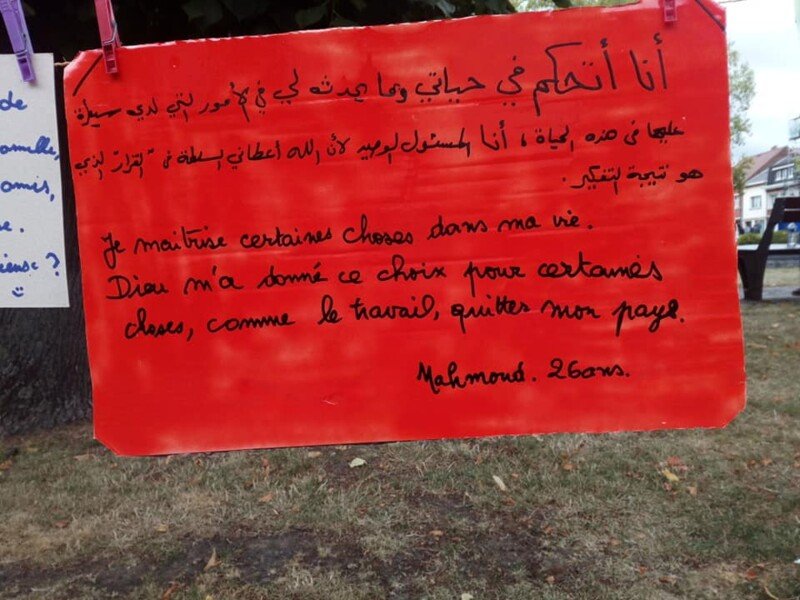 أنا أتحكم في حياتي وبما يحدثه لي في الأمور التي لدي سيطرة
عليها في هذه الحياة، أنا المسئول الوحيد لأن الله أعطاني السلطة في "القرار" الذي
هو نتيجة التفكير.
Je maitrise certaines choses dans ma vie.
Dieu m'a donné ce choix pour certaines
choses, comme le travail, quitter mon pays.
Mahmoud. 26 ans.
de
amis,
?